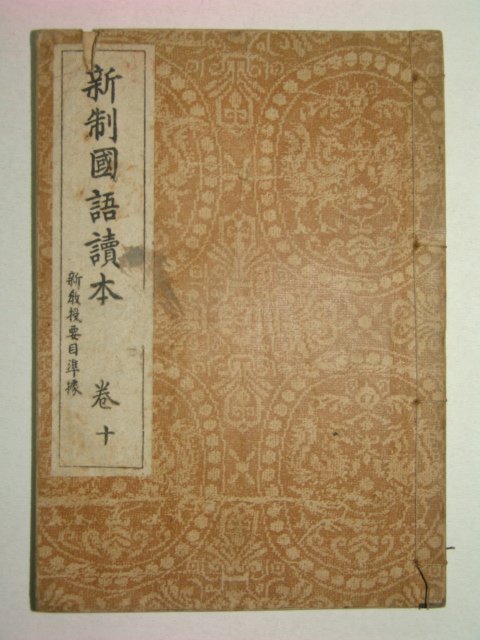 新制國語讀本
卷十
新敎授要目準據